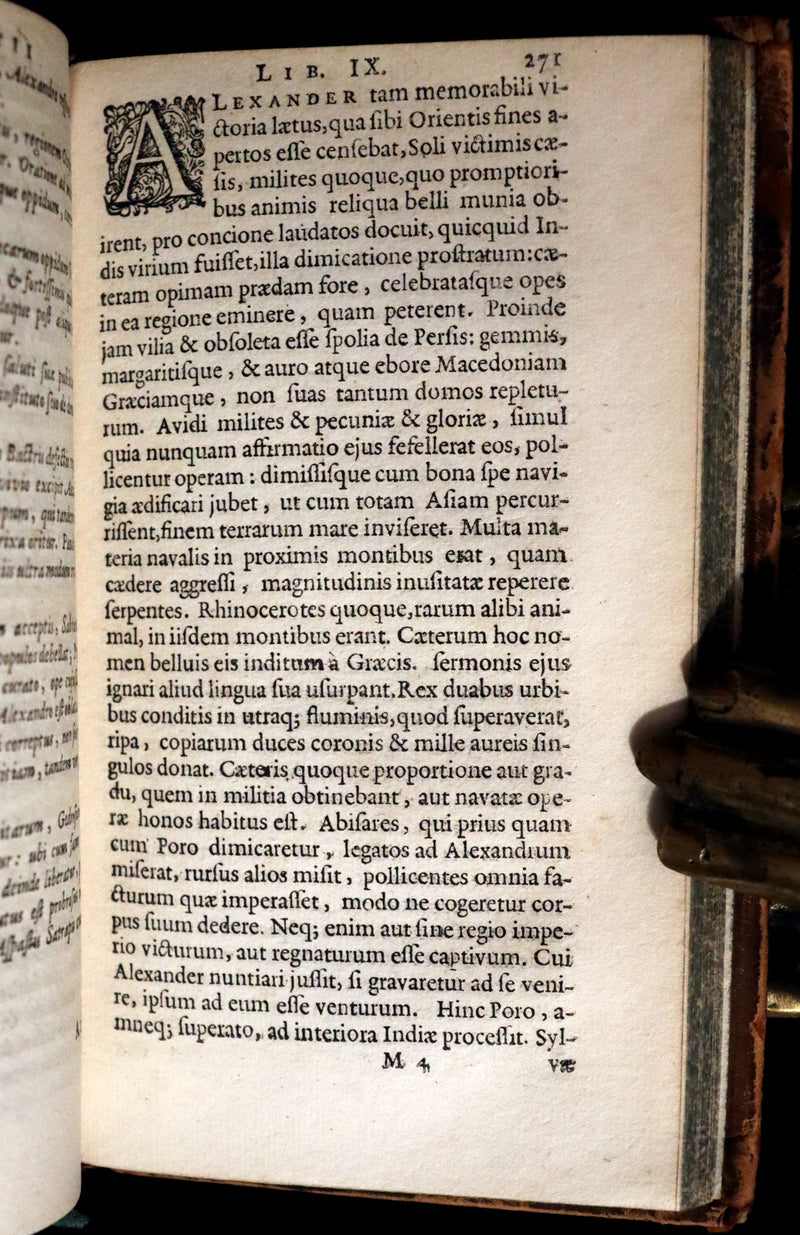 LIB. IX. 271
ALEXANDER tam memorabili vi-
ctoria lætus, qua ſibi Orientis fines a-
pertos eſſe cenſebat, Soli victimis cæ-
ſis, milites quoque, quo promptiori-
bus animis reliqua belli munia ob-
irent, pro concione laudatos docuit, quicquid In-
dis virium fuiſſet, illa dimicatione proſtratum: cæ-
teram opimam prædam fore, celebrataſque opes
in ea regione eminere, quam peterent. Proinde
jam vilia & obſoleta eſſe ſpolia de Perſis: gemmis,
margaritiſque, & auro atque ebore Macedoniam
Græciamque, non ſuas tantum domos repletu-
rum. Avidi milites & pecuniæ & gloriæ, ſimul
quia nunquam affirmatio ejus fefellerat eos, pol-
licentur operam: dimiſſiſque cum bona ſpe navi-
gia ædificari jubet, ut cum totam Aſiam percur-
riſſent, finem terrarum mare inviſeret. Multa ma-
teria navalis in proximis montibus erat, quam
cædere aggreſſi, magnitudinis inuſitatæ reperere
ſerpentes. Rhinocerotes quoque, rarum alibi ani-
mal, in iiſdem montibus erant. Cæterum hoc no-
men belluis eis inditum à Græcis. ſermonis ejus
ignari aliud lingua ſua uſurpant. Rex duabus urbi-
bus conditis in utraq; fluminis, quod ſuperaverat,
ripa, copiarum duces coronis & mille aureis ſin-
gulos donat. Cæteris quoque proportione aut gra-
du, quem in militia obtinebant, aut navatæ ope-
ræ honos habitus eſt. Abiſares, qui prius quam
cum Poro dimicaretur, legatos ad Alexandrum
miſerat, rurſus alios miſit, pollicentes omnia fa-
cturum quæ imperaſſet, modo ne cogeretur cor-
pus ſuum dedere. Neq; enim aut ſine regio impe-
rio victurum, aut regnaturum eſſe captivum. Cui
Alexander nuntiari juſſit, ſi gravaretur ad ſe veni-
re, ipſum ad eum eſſe venturum. Hinc Poro, a-
mneq; ſuperato, ad interiora Indiæ proceſſit. Syl-
M 4 væ